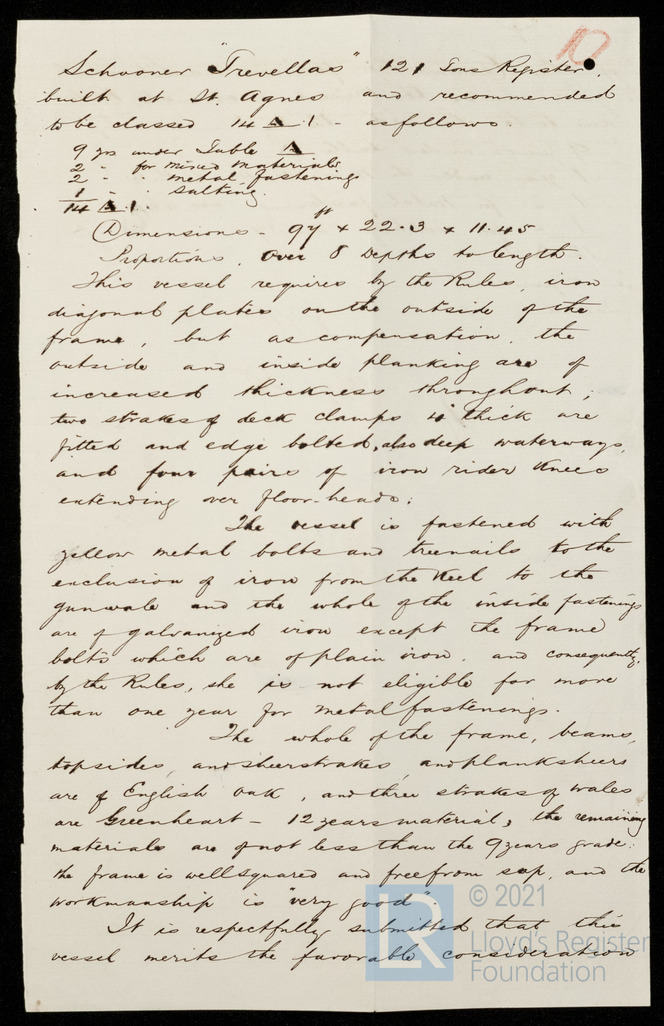 Schooner "Trevellas" 121 Tons Register,
built at St. Agnes and recommended
to be classed 14 A 1 - as follows.
9 yrs under Table A
2 " for mixed materials
2 " " metal fastenings
1 " " salting
14 A 1.
Dimensions - 97 ft x 22.3 x 11.45
Proportions, Over 8 Depths to length.
This vessel requires by the Rules, iron
diagonal plates on the outside of the
frame, but as compensation, the
outside and inside planking are of
increased thickness throughout;
two strakes of deck clamps 4" thick are
fitted and edge bolted, also deep waterways,
and four pairs of iron rider knees
extending over floor-heads;
The vessel is fastened with
yellow metal bolts and treenails to the
exclusion of iron from the keel to the
gunwale and the whole of the inside fastenings
are of galvanized iron except the frame
bolts which are of plain iron. and consequently,
by the Rules, she is not eligible for more
than one year for metal fastenings.
The whole of the frame, beams,
topsides, and sheerstrakes, and planksheers
are of English Oak, and three strakes of wales
are Greenheart - 12 years material, the remaining
materials are of not less than the 9 years grade:
the frame is well squared and free from sap, and the
workmanship is "very good".
It is respectfully submitted that this
vessel merits the favorable consideration
LR © 2021
Lloyd's Register
Foundation